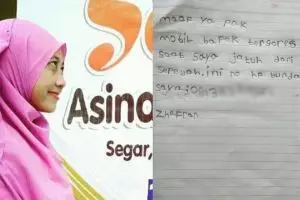 So
Asina
Segar,
maaf ya pak
mobil bapak tergores
saat saya jatuh dari
sepedah, ini no ha bunda
saya
Zhafran